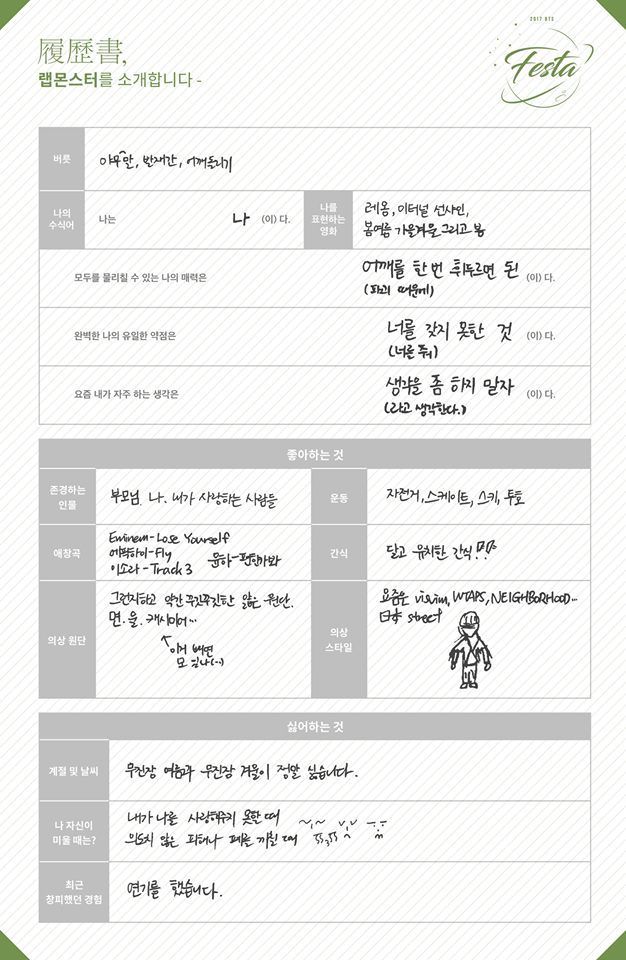 2017 BTS
Festa
履歷書,
랩몬스터를 소개합니다 -
버릇
아무말, 반재간, 어깨돌리기
나의
수식어
나는 나 (이)다.
나를
표현하는
영화
레옹, 이터널 선샤인,
봄여름 가을겨울 그리고 봄
모두를 물리칠 수 있는 나의 매력은 어깨를 한 번 휘두르면 된 (이)다.
(파괴 때문에)
완벽한 나의 유일한 약점은 너를 갖지 못한 것 (이)다.
(너를 줘)
요즘 내가 자주 하는 생각은 생각을 좀 하지 말자 (이)다.
(라고 생각한다.)
좋아하는 것
존경하는
인물
부모님. 나. 내가 사랑하는 사람들
운동
자전거, 스케이트, 스키, 투호
애창곡
Eminem-Lose Yourself
에픽하이-Fly
이소라-Track 3
윤하-편한가봐
간식
달고 유치한 간식!?
의상 원단
그런지하고 약간 꾸깃꾸깃한 얇은 원단.
면. 울. 캐시미어...
이거 빼면
모 있나(..)
의상
스타일
요즘은 visvim, WTAPS, NEIGHBORHOOD...
日本 street
싫어하는 것
계절 및 날씨
무진장 여름과 무진장 겨울이 정말 싫습니다.
나 자신이
미울 때는?
내가 나를 사랑해주지 못할 때
의도치 않은 피해나 폐를 끼칠 때
최근
창피했던 경험
연기를 했습니다.